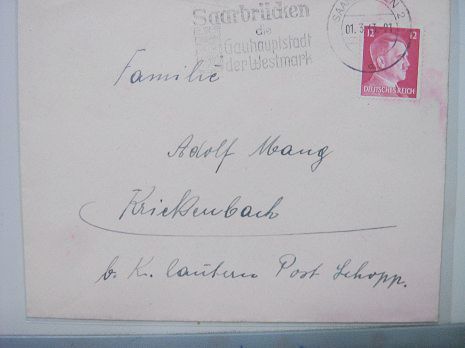 Saarbrücken
die
Gauhauptstadt
der Westmark
SAARBRÜCKEN 2
01.3.43
12 12
DEUTSCHES REICH
Familie
Adolf Mang
Krickenbach
b. K. lautern Post Schopp.